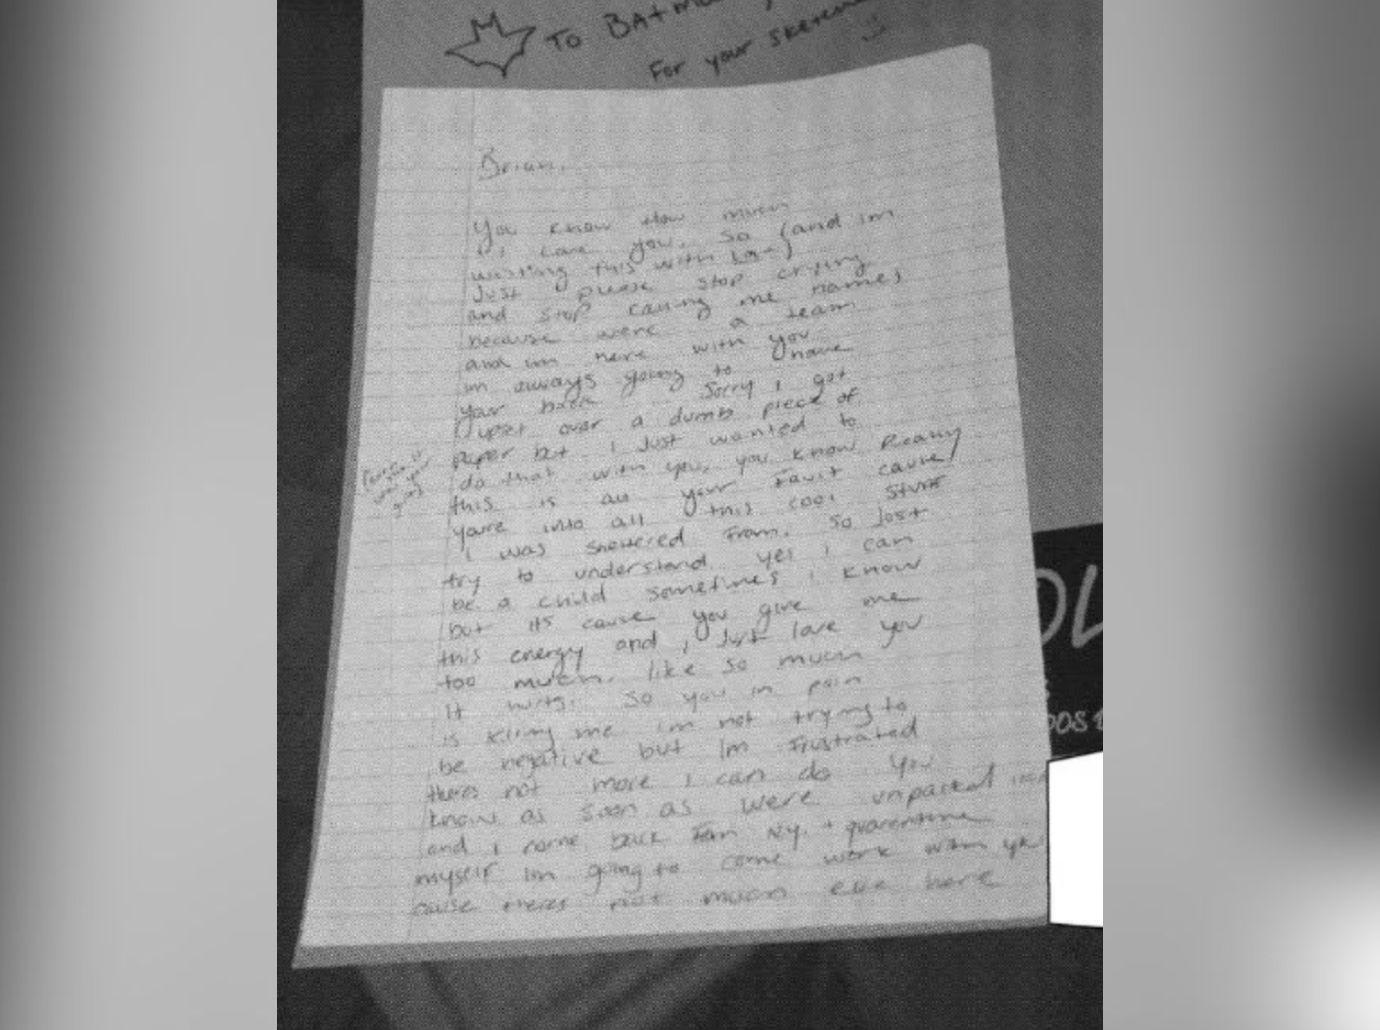 TO BATM
For your sketch
Brian,
You know How much
i love you. So (and im
writing this with love)
Just please stop crying
and stop calling me names
because were a team
and im here with you
im always going to have
your back. Sorry i got
upset over a dumb piece of
paper but i Just wanted to
do that with you, you know Really
this is all your fault cause
youre into all this cool stuff
i was sheltered from. So just
try to understand yes i can
be a child sometimes i know
but its cause you give me
this energy and i Just love you
too much. like so much
it hurts. So you in pain
is killing me im not trying to
be negative but Im Frustrated
theres not more i can do You
know as soon as were unpacked
and i come back from NY. + quarentine
myself Im going to come work with
cause theres not much else here
OL
POS